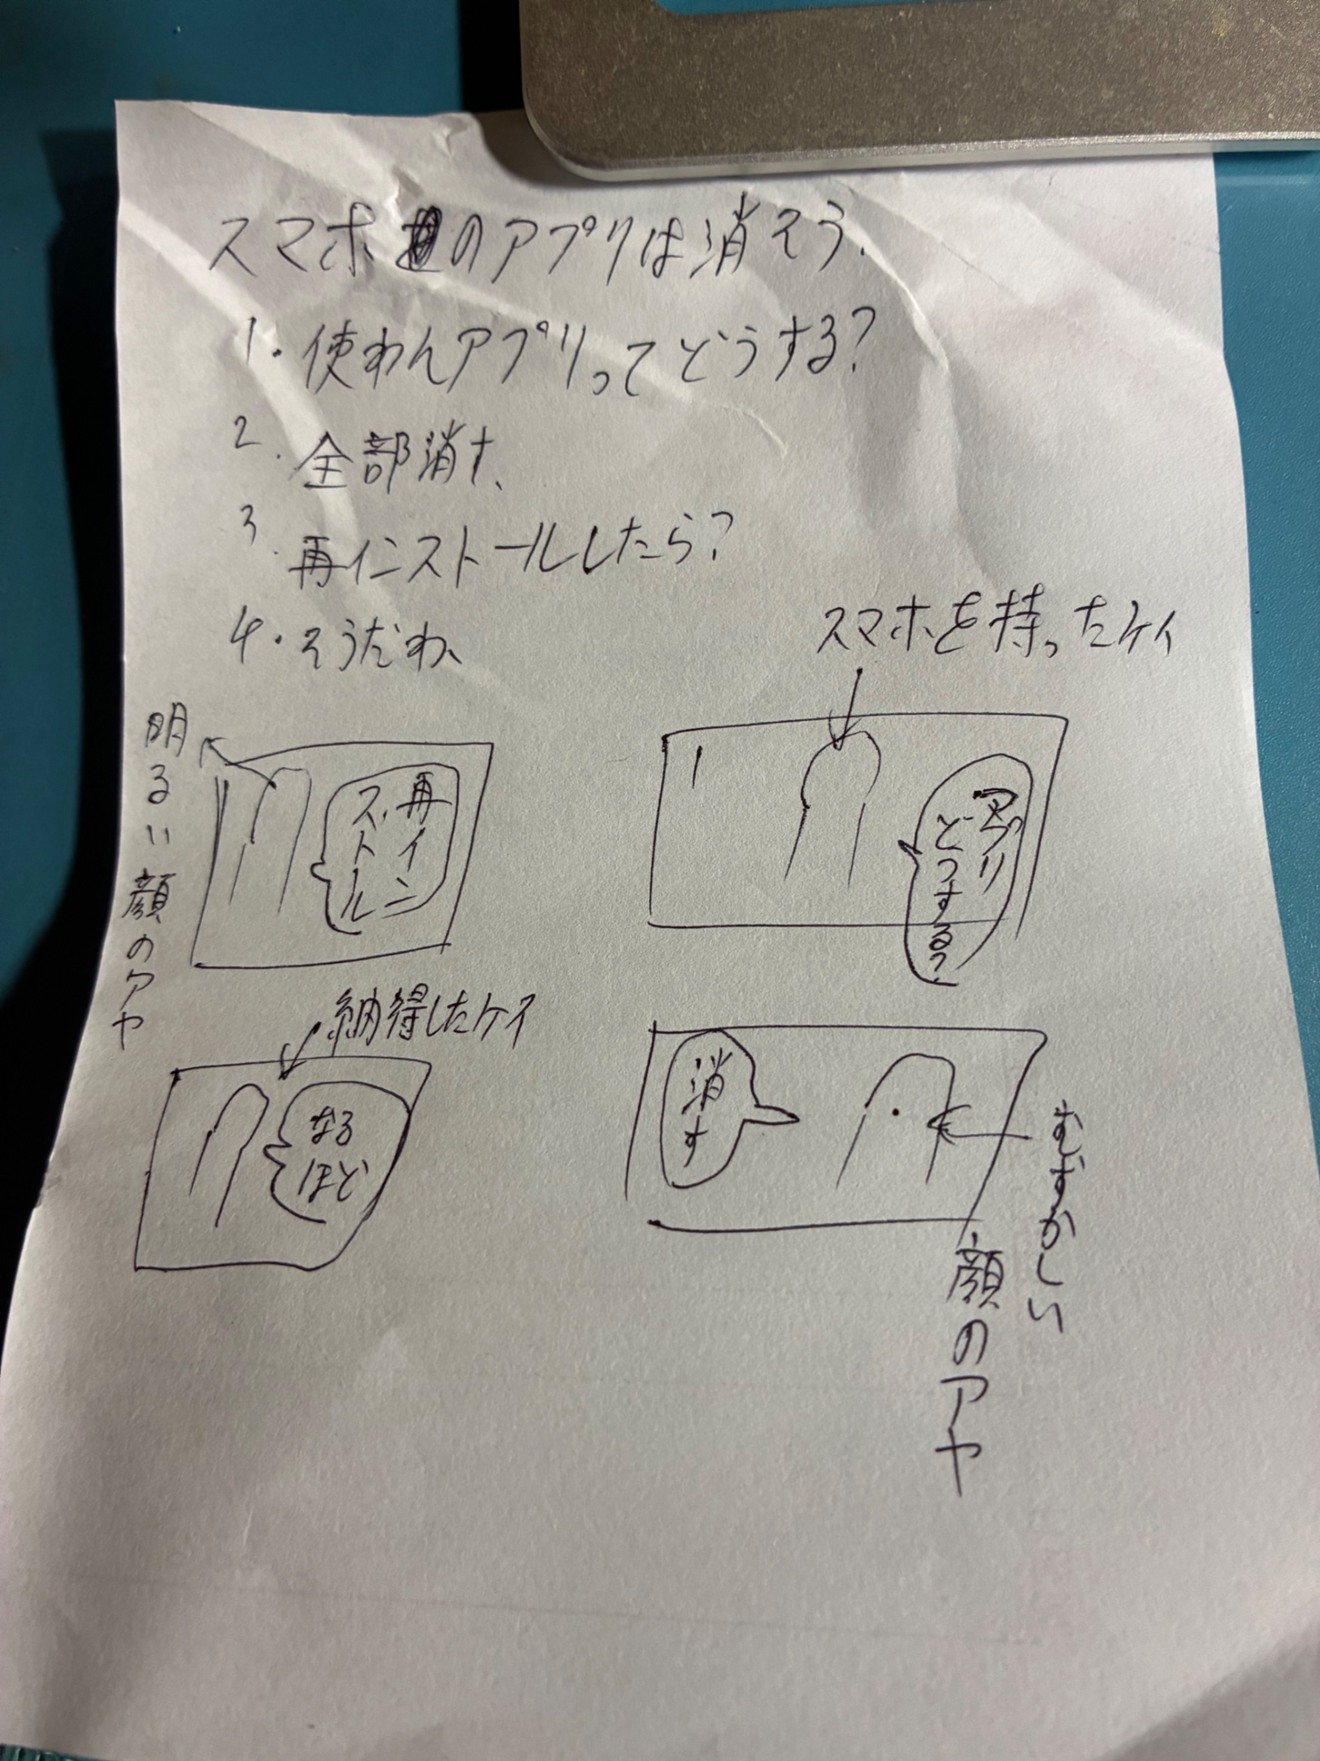 スマホのアプリは消そう.
1. 使わんアプリってどうする?
2. 全部消す、
3. 再インストールしたら?
4. そうだわ、
スマホを持ったケイ
1
アプリ
どうする?
消す
むずかしい
顔のアヤ
再イン
ストール
明るい顔のアヤ
納得したケイ
なる
ほど